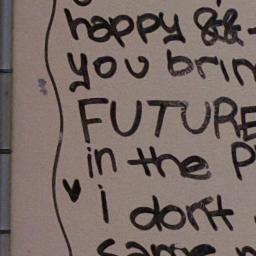 happy &&
you brin
FUTURE
in the P
i don't
same